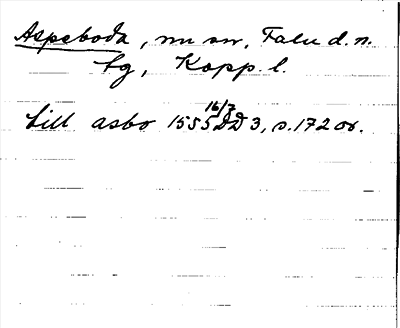 Aspeboda, nu sn, Falu d.n.
tg, Kopp. l.
till asbo 1555 16/7 DD 3, s. 172 or.